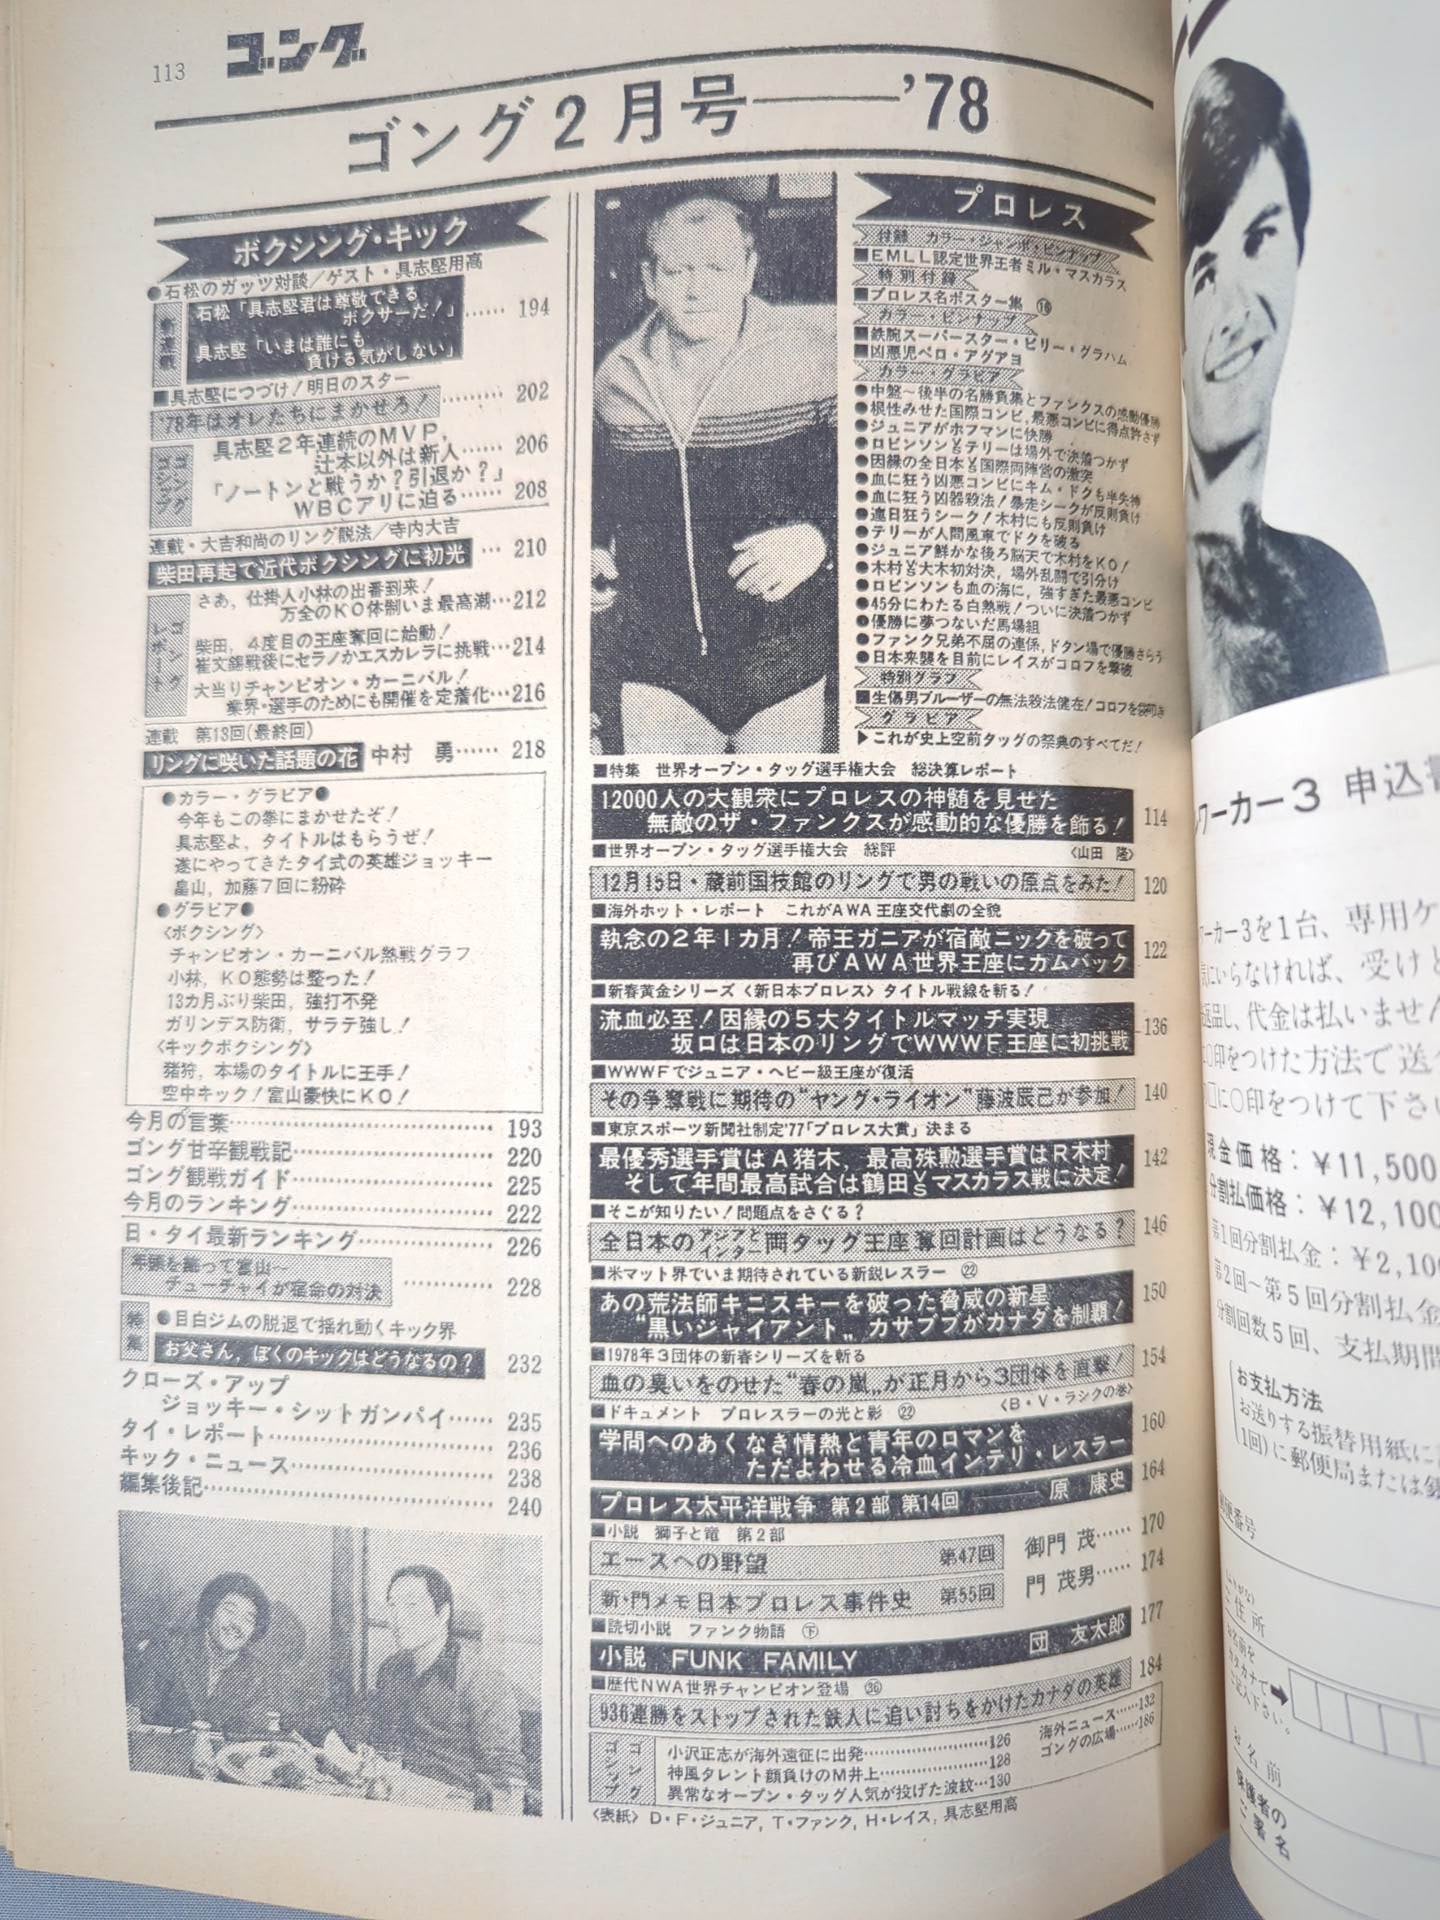 113
ゴング
ゴング2月号——'78
ボクシング・キック
●石松のガッツ対談／ゲスト・具志堅用高
新連載
石松「具志堅君は尊敬できる
ボクサーだ！」
具志堅「いまは誰にも
負ける気がしない」
……194
■具志堅につづけ！明日のスター
'78年はオレたちにまかせろ！………202
ゴングゴシップ
具志堅2年連続のMVP,
辻本以外は新人……206
「ノートンと戦うか？引退か？」
WBCアリに迫る……208
連載・大吉和尚のリング説法／寺内大吉
柴田再起で近代ボクシングに初光…210
ゴングレポート
さあ，仕掛人小林の出番到来！
万全のKO体制いま最高潮…212
柴田，4度目の王座奪回に始動！
崔文錫戦後にセラノかエスカレラに挑戦…214
大当りチャンピオン・カーニバル！
業界・選手のためにも開催を定着化…216
連載　第13回(最終回)
リングに咲いた話題の花　中村　勇……218
●カラー・グラビア●
今年もこの拳にまかせたぞ！
具志堅よ，タイトルはもらうぜ！
遂にやってきたタイ式の英雄ジョッキー
畠山，加藤7回に粉砕
●グラビア●
〈ボクシング〉
チャンピオン・カーニバル熱戦グラフ
小林，KO態勢は整った！
13カ月ぶり柴田，強打不発
ガリンデス防衛，サラテ強し！
〈キックボクシング〉
猪狩，本場のタイトルに王手！
空中キック！富山豪快にKO！
今月の言葉……193
ゴング甘辛観戦記……220
ゴング観戦ガイド……225
今月のランキング……222
日・タイ最新ランキング……226
年頭を飾って富山〜
チューチャイが宿命の対決………228
特集
●目白ジムの脱退で揺れ動くキック界
お父さん，ぼくのキックはどうなるの？　232
クローズ・アップ
ジョッキー・シットガンパイ……235
タイ・レポート……236
キック・ニュース……238
編集後記……240
プロレス
付録　カラー・ジャンボ・ピンナップ
■EMLL認定世界王者ミル・マスカラス
特別付録
■プロレス名ポスター集 ⑯
カラー・ピンナップ
■鉄腕スーパースター・ビリー・グラハム
■凶悪児ペロ・アグアヨ
カラー・グラビア
●中盤〜後半の名勝負集とファンクスの感動優勝
●根性みせた国際コンビ，最悪コンビに得点許さず
●ジュニアがホフマンに快勝
●ロビンソンVSテリーは場外で決着つかず
●因縁の全日本VS国際両陣営の激突
●血に狂う凶悪コンビにキム・ドクも半失神
●血に狂う凶器殺法！暴走シークが反則負け
●連日狂うシーク！木村にも反則負け
●テリーが人間風車でドクを破る
●ジュニア鮮かな後ろ脳天で木村をKO！
●木村VS大木初対決，場外乱闘で引分け
●ロビンソンも血の海に，強すぎた最悪コンビ
●45分にわたる白熱戦！ついに決着つかず
●優勝に夢つないだ馬場組
●ファンク兄弟不屈の連係，ドタン場で優勝さらう
●日本来襲を目前にレイスがコロフを撃破
特別グラフ
■生傷男ブルーザーの無法殺法健在！コロフを袋叩き
グラビア
▶これが史上空前タッグの祭典のすべてだ！
■特集　世界オープン・タッグ選手権大会　総決算レポート
12000人の大観衆にプロレスの神髄を見せた
無敵のザ・ファンクスが感動的な優勝を飾る！　114
■世界オープン・タッグ選手権大会　総評　〈山田　隆〉
12月15日・蔵前国技館のリングで男の戦いの原点をみた！　120
■海外ホット・レポート　これがAWA王座交代劇の全貌
執念の2年1カ月！帝王ガニアが宿敵ニックを破って
再びAWA世界王座にカムバック　122
■新春黄金シリーズ〈新日本プロレス〉タイトル戦線を斬る！
流血必至！因縁の5大タイトルマッチ実現
坂口は日本のリングでWWWF王座に初挑戦　136
■WWWFでジュニア・ヘビー級王座が復活
その争奪戦に期待の“ヤング・ライオン”藤波辰巳が参加！　140
■東京スポーツ新聞社制定'77「プロレス大賞」決まる
最優秀選手賞はA猪木，最高殊勲選手賞はR木村
そして年間最高試合は鶴田VSマスカラス戦に決定！　142
■そこが知りたい！問題点をさぐる？
全日本のアジアとインター両タッグ王座奪回計画はどうなる？　146
■米マット界でいま期待されている新鋭レスラー　㉒
あの荒法師キニスキーを破った脅威の新星
“黒いジャイアント„カサブブがカナダを制覇！　150
■1978年3団体の新春シリーズを斬る
血の臭いをのせた“春の嵐„が正月から3団体を直撃！　154
■ドキュメント　プロレスラーの光と影　㉒　〈B・V・ラシクの巻〉
学問へのあくなき情熱と青年のロマンを
ただよわせる冷血インテリ・レスラー　160
プロレス太平洋戦争　第2部　第14回——原　康史　164
■小説　獅子と竜　第2部
エースへの野望　第47回　御門　茂……170
新・門メモ日本プロレス事件史　第55回　門　茂男……174
■読切小説　ファンク物語　㊦
小説　FUNK FAMILY　団　友太郎　177
■歴代NWA世界チャンピオン登場　㊱
936連勝をストップされた鉄人に追い討ちをかけたカナダの英雄　184
ゴングゴシップ
小沢正志が海外遠征に出発……126
神風タレント顔負けのM井上……128
異常なオープン・タッグ人気が投げた波紋…130
海外ニュース……132
ゴングの広場……186
〈表紙〉D・F・ジュニア，T・ファンク，H・レイス，具志堅用高
ワーカー3　申込書
ワーカー3を1台、専用ケ
気にいらなければ、受けと
返品し、代金は払いません
○印をつけた方法で送
□に○印をつけて下さい
現金価格：¥11,500
分割払価格：¥12,100
第1回分割払金：¥2,10
第2回〜第5回分割払金
分割回数5回、支払期間
お支払方法
お送りする振替用紙に
1回)に郵便局または銀
郵便番号
ご住所
お名前を
カタカナで
ご記入下さい。
お名前
保護者の
ご署名